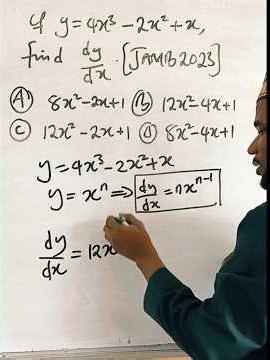 If y=4x³-2x²+x,
find dy/dx. [JAMB 2023]
(A) 8x²-2x+1 (B) 12x²-4x+1
(C) 12x²-2x+1 (D) 8x²-4x+1
y=4x³-2x²+x
y=xⁿ⇒ dy/dx=nxⁿ⁻¹
dy/dx=12x